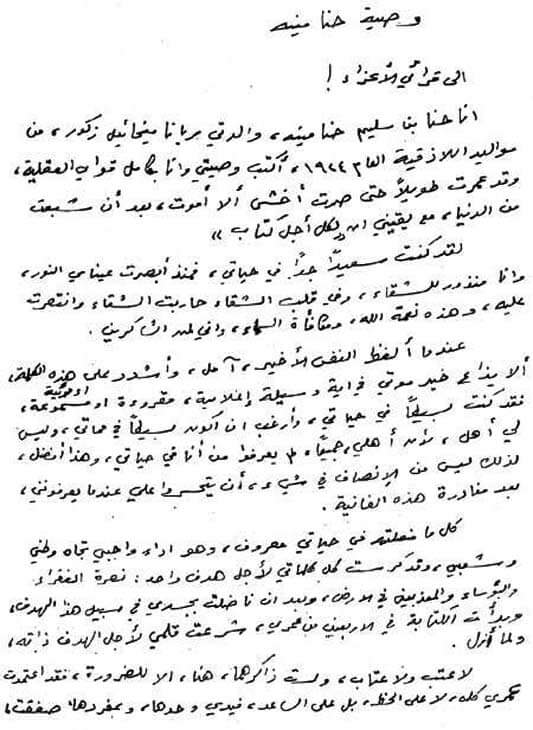 وصية حنا مينه
الى قرائي الأعزاء !
انا حنا بن سليم حنا مينه، والدتي مريانا ميخائيل زكور، من
مواليد اللاذقية العام ١٩٢٤، أكتب وصيتي وانا بكامل قواي العقلية،
وقد عمرت طويلاً حتى صرت أخشى ألا أموت، بعد أن شبعت
من الدنيا، مع يقيني انه «لكل أجل كتاب»
لقد كنت سعيداً جداً في حياتي، فمنذ أبصرت عيناي النور،
وانا منذور للشقاء، وفي قلب الشقاء حاربت الشقاء وانتصرت
عليه، وهذه نعمة الله، ومكافأة السماء، واني لمن الشاكرين .
عندما ألفظ النفس الأخير، آمل، وأشدد على هذه الكلمة،
ألا يذاع خبر موتي في اية وسيلة إعلامية، مقروءة او مسموعة، او مرئية
فقد كنت بسيطاً في حياتي، وأرغب ان اكون بسيطاً في مماتي، وليس
لي أهل، لأن أهلي، جميعاً، لم يعرفوا من أنا في حياتي، وهذا أفضل،
لذلك ليس من الإنصاف في شيء، أن يتحسروا علي عندما يعرفونني،
بعد مغادرة هذه الفانية .
كل ما فعلته في حياتي معروف، وهو اداء واجبي تجاه وطني
وشعبي، وقد كرست كل كلماتي لأجل هدف واحد: نصرة الفقراء
والبؤساء والمعذبين في الارض، وبعد ان ناضلت بجسدي في سبيل هذا الهدف،
وبدأت الكتابة في الاربعين من عمري، شرعت قلمي لأجل الهدف ذاته،
ولما أزل .
لا عتب ولا عتاب، ولست ذاكرهما، هنا، الا للضرورة، فقد اعتمدت
عمري كله، لا على الحظ، بل على الساعد، فيدي وحدها، وبمفردها، صفقت،